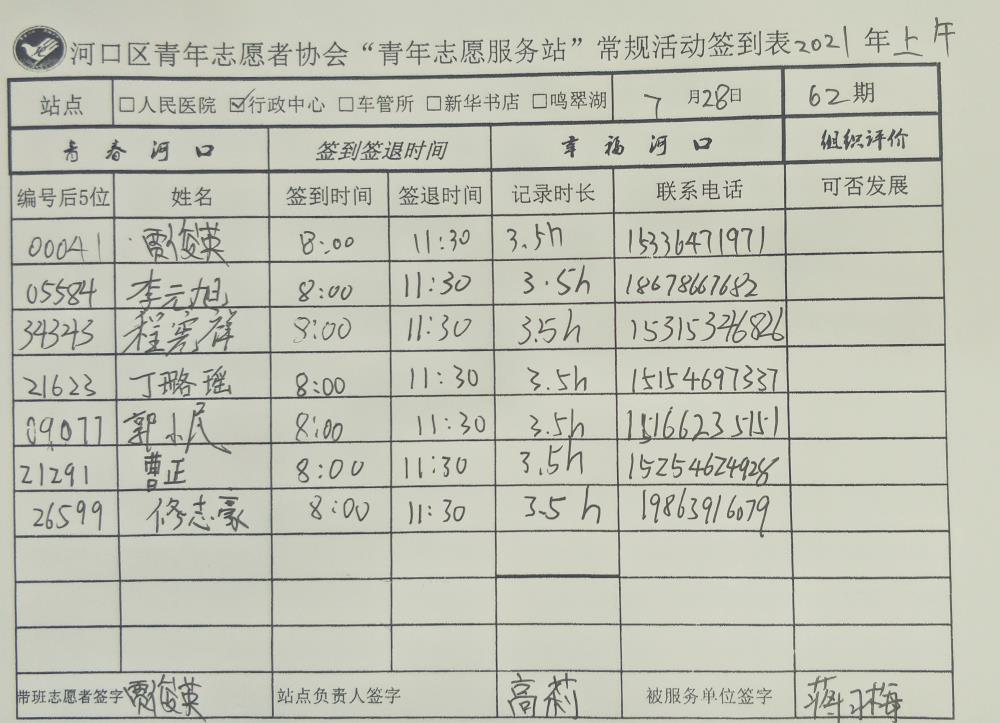 河口区青年志愿者协会“青年志愿服务站”常规活动签到表2021年上午
站点 □人民医院 ☑行政中心 □车管所 □新华书店 □鸣翠湖 7月28日 62期
青春河口 签到签退时间 幸福河口 组织评价
编号后5位 姓名 签到时间 签退时间 记录时长 联系电话 可否发展
00041 贾俊英 8:00 11:30 3.5h 15336471971
05584 李元旭 8:00 11:30 3.5h 18678667682
34343 8:00 11:30 3.5h 15315346826
21623 丁璐瑶 8:00 11:30 3.5h 15154697337
09077 郭小民 8:00 11:30 3.5h 15166235151
21291 曹正 8:00 11:30 3.5h 15254624928
26599 修志豪 8:00 11:30 3.5h 19863916079
带班志愿者签字 贾俊英 站点负责人签字 高莉 被服务单位签字